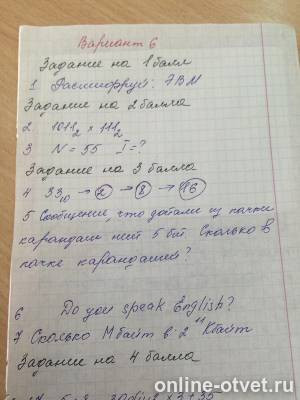 Вариант 6
Задание на 1 балл
1 Расшифруй: ЭВМ
Задание на 2 балла
2 1011₂ × 111₂
3 N = 55 I = ?
Задание на 3 балла
4 33₁₀ → 2 → 8 → 16
5 Сообщение, что достали из пачки
карандаш несёт 5 бит. Сколько в
пачке карандашей?
6 Do you speak English?
7 Сколько Мбайт в 2¹¹ Кбайт
Задание на 4 балла
online-otvet.ru